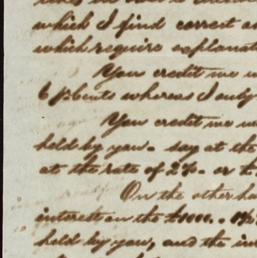 which I find correct
which require explanat
You credit me
6 pcents whereas I only
You credit me
held by you. say at the
at the rate of 2%. or £
On the other ha
interest on the £1000.
held by you, and the in